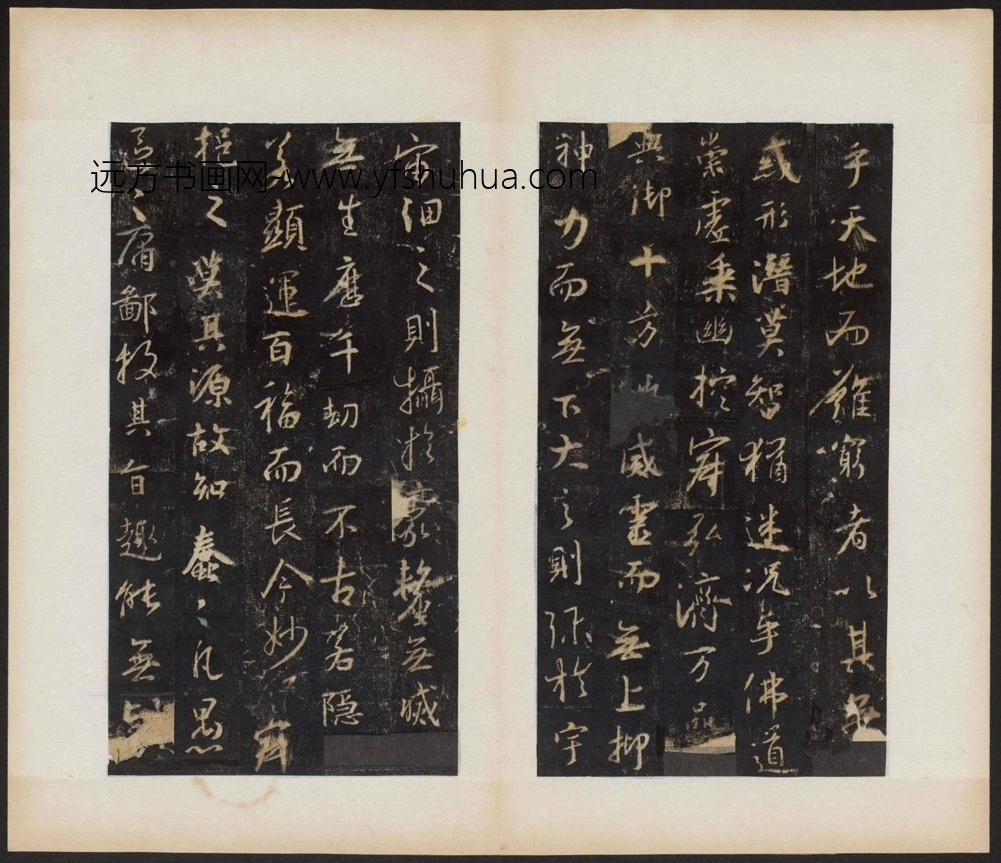 乎天地而難窮者以其无
惑形潛莫智猶迷況乎佛道
崇虛乘幽控寂弘濟万品
典御十方威靈而無上抑
神力而無下大之則弥於宇
宙細之則攝於豪釐無滅
無生歷千劫而不古若隱
若顯運百福而長今妙
挹之莫其源故知蠢〻凡愚
區〻庸鄙投其旨趣能無
远方书画网-www.yfshuhua.com